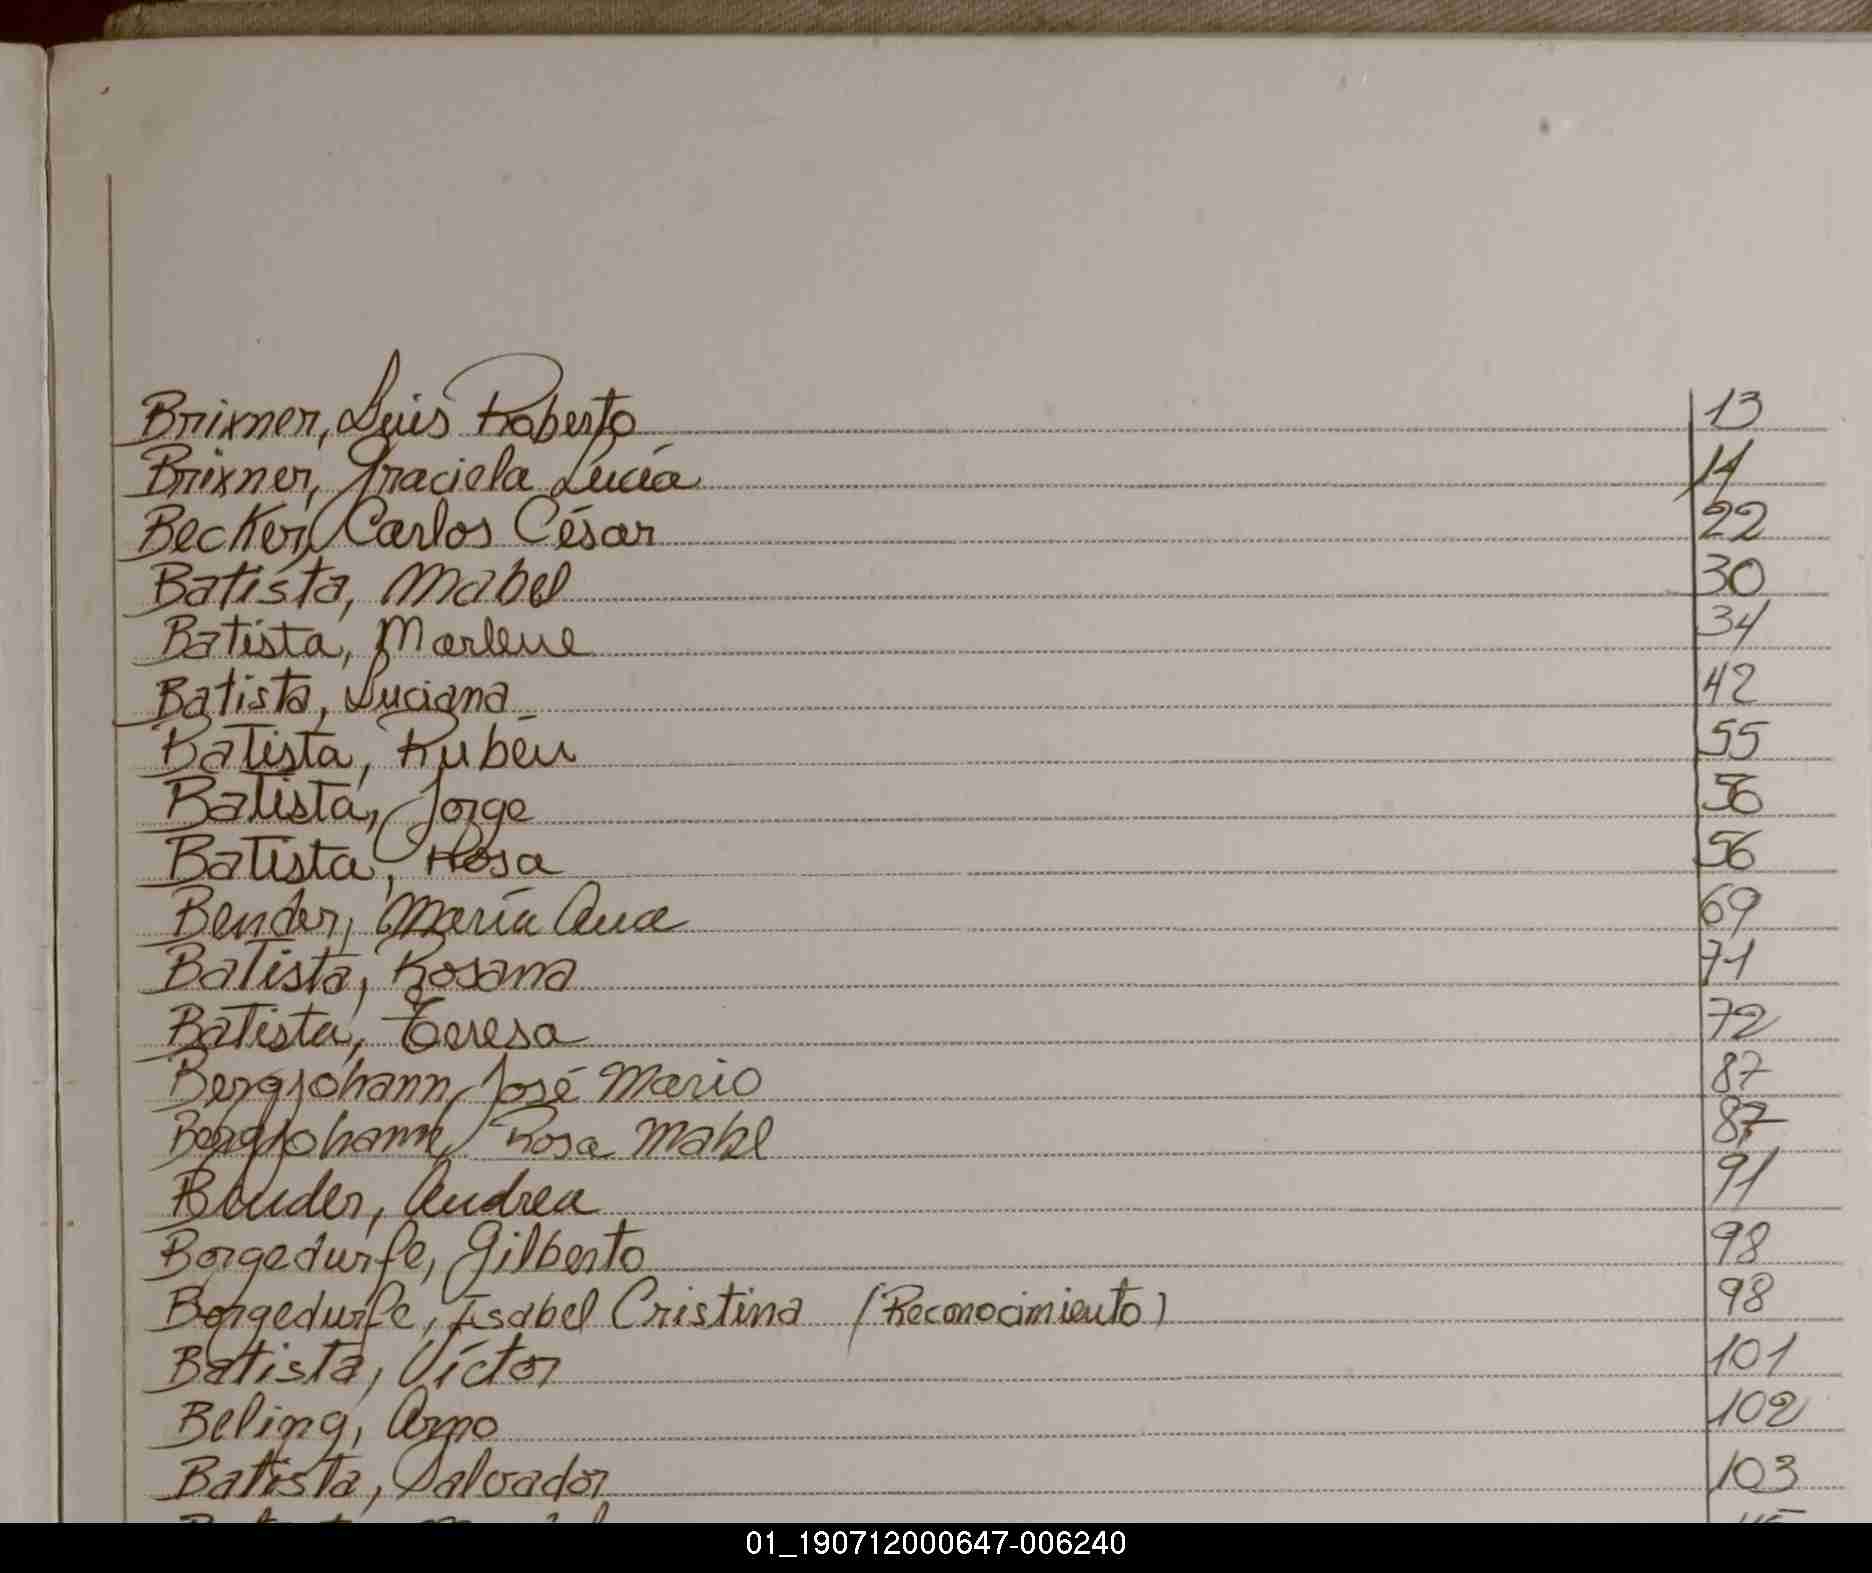 Brixner, Luis Roberto 13
Brixner, Graciela Lucía 14
Becker, Carlos César 22
Batista, Mabel 30
Batista, Marlene 34
Batista, Luciana 42
Batista, Rubén 55
Batista, Jorge 56
Batista, Rosa 56
Bender, María Ana 69
Batista, Rosana 71
Batista, Teresa 72
Bergjohann, José Mario 87
Bergjohann, Rosa Mabel 87
Bender, Andrea 91
Borgedurfe, Gilberto 98
Borgedurfe, Isabel Cristina (Reconocimiento) 98
Batista, Víctor 101
Beling, Arno 102
Batista, Salvador 103
01_190712000647-006240